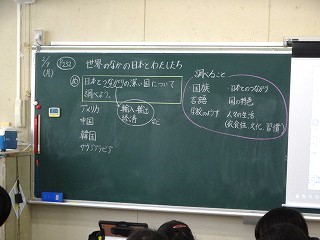 2/9 (月)
P232
世界のなかの日本とわたしたち
め
日本とつながりの深い国について
調べよう。
アメリカ
中国
韓国
サウジアラビア
輸入・輸出
経済
など
調べること
国旗
言語
学校のようす
日本とのつながり
国の特色
人々の生活
(衣食住、文化、習慣)